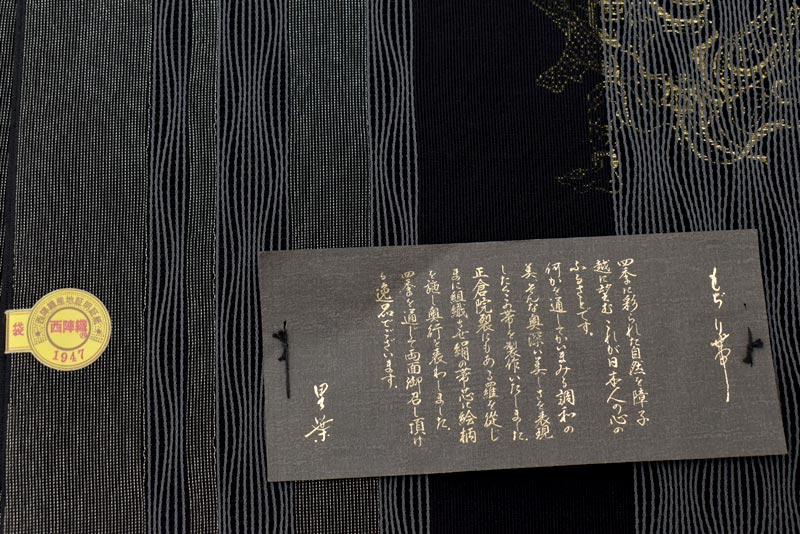 もぢり帯
四季に彩られた自然を障子
越に望む これが日本人の心の
ふるさとです。
何かを通してかいまみる調和の
美、そんな奥深い美しさを表現
したくこの帯を製作いたしました。
正倉院裂にもある羅を従し
まに組織させ絹の帯芯に絵柄
を施し奥行を表わしました。
四季を通じて両面御召し頂け
る逸品でございます。
里葉
西陣織産地証明証紙
西陣織
1947
袋